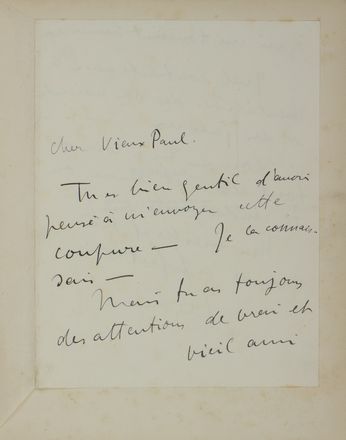 cher Vieux Paul.
Tu es bien gentil d'avoir
pensé à m'envoyer cette
coupure — Je la connais-
sais —
Mais tu as toujours
des attentions de vrai et
vieil ami